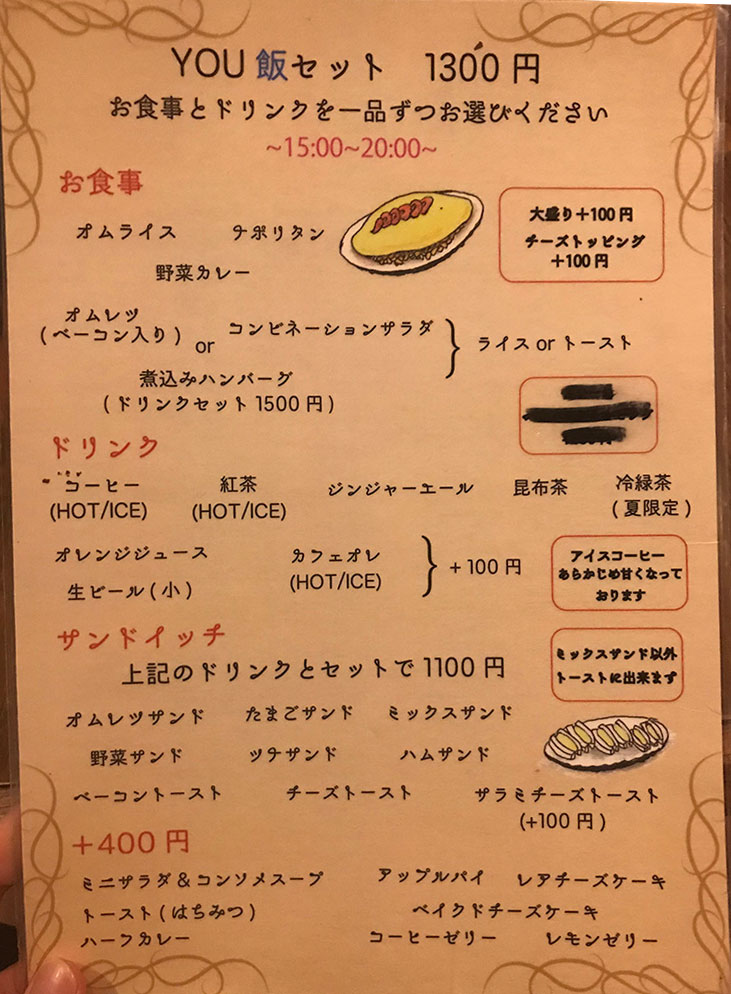 YOU 飯セット 1300円
お食事とドリンクを一品ずつお選びください
~15:00~20:00~
お食事
オムライス ナポリタン
野菜カレー
大盛り+100円
チーズトッピング
+100円
オムレツ
(ベーコン入り) or コンビネーションサラダ
ライス or トースト
煮込みハンバーグ
(ドリンクセット1500円)
ドリンク
コーヒー 紅茶 ジンジャーエール 昆布茶 冷緑茶
(HOT/ICE) (HOT/ICE) (夏限定)
オレンジジュース カフェオレ
生ビール(小) (HOT/ICE)
+100円
アイスコーヒー
あらかじめ甘くなって
おります
サンドイッチ
上記のドリンクとセットで1100円
ミックスサンド以外
トーストに出来ます
オムレツサンド たまごサンド ミックスサンド
野菜サンド ツナサンド ハムサンド
ベーコントースト チーズトースト サラミチーズトースト
(+100円)
+400円
ミニサラダ&コンソメスープ アップルパイ レアチーズケーキ
トースト(はちみつ) ベイクドチーズケーキ
ハーフカレー コーヒーゼリー レモンゼリー